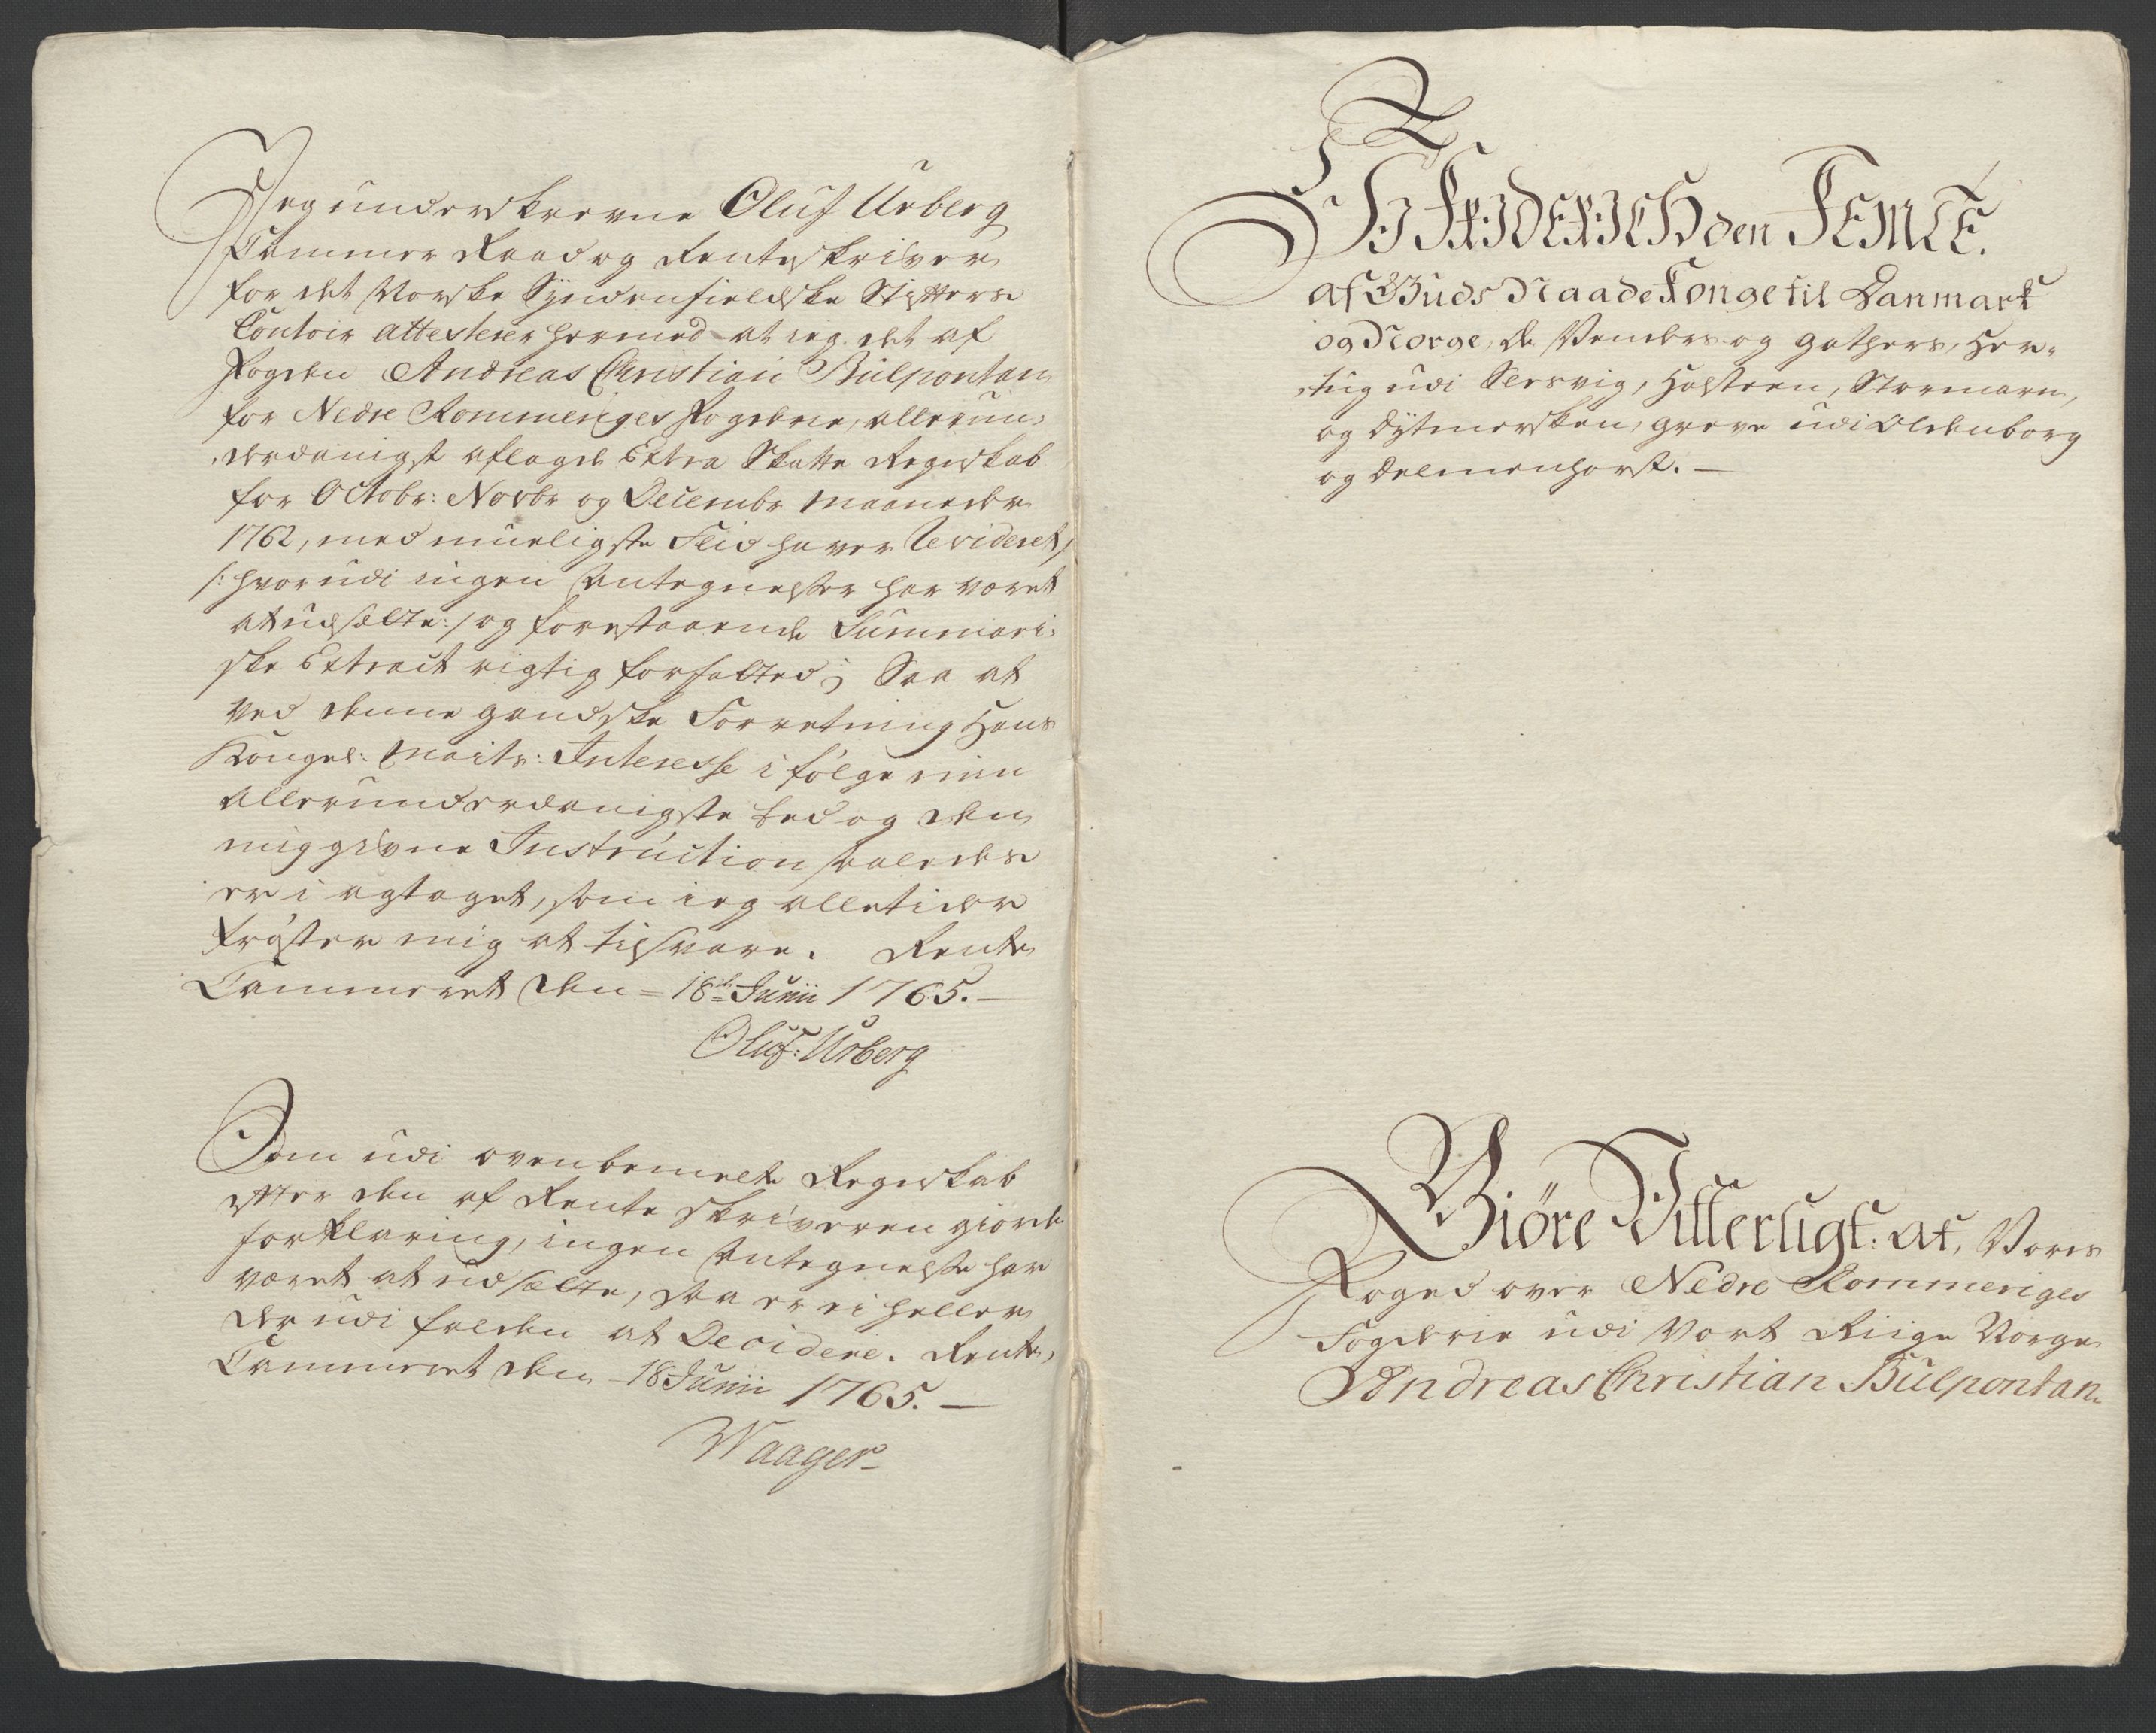 Jeg underskrevne Oluf Urberg
Cammer Raad og Renteskriver
for det Norske Syndenfieldske Stifters
Contoir attesterer hermed at jeg det af
Fogden Andreas Christian Bulpontan
for Nedre Rommeriges Fogderie, allerun-
derdanigst aflagde Extra Skatte Regnskab
for Octobr: Novbr og Decembr Maaneder
1762, med mueligste Fliid haver Revideret,
/: hvorudi ingen Antegnelser har været
at udsætte :/ og forestaaende Summari-
ske Extract rigtig forfatted; Saa at
ved denne gandske Forretning Hans
Kongel: Maits: Interesse i følge min
allerunderdanigste Eed og den
mig givne Instruction saaledes
er i agtaget, som jeg alletider
trøster mig at tilsvare. Rente
Cammeret den 18de Junii 1765.
Oluf: Urberg
Som udi ovenbemelte Regnskab
efter den af Renteskriveren giorde
forklaring, ingen Antegnelse har
været at udsætte, saa er ei heller
der udi falden at Decidere. Rente
Cammeret den 18 Junii 1765.
Waager
Vi FRIDERICH den FEMTE.
af Guds Naade Konge til Danmark
og Norge, de Venders og Gothers, Her-
tug udi Slesvig, Holsteen, Stormarn,
og Dytmersken, Greve udi Oldenborg
og Delmenhorst.
Giöre Vitterligt: at, Vores
Foged over Nedre Rommeriges
Fogderie udi Vort Riige Norge
Andreas Christian Bulpontan